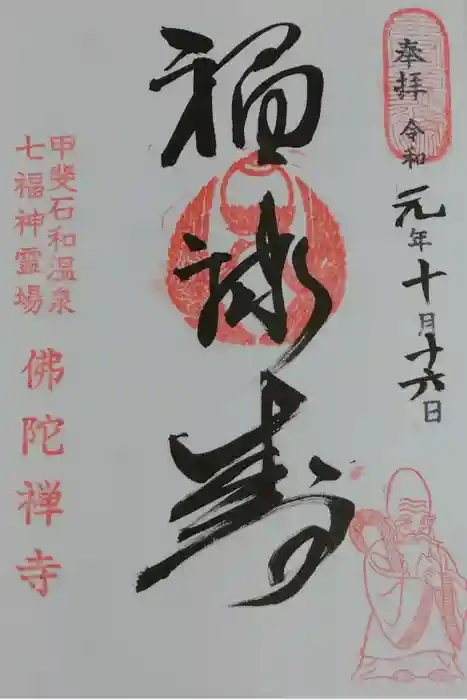 奉拝 令和元年十月十六日
福禄寿
甲斐石和温泉
七福神靈場
佛陀禅寺